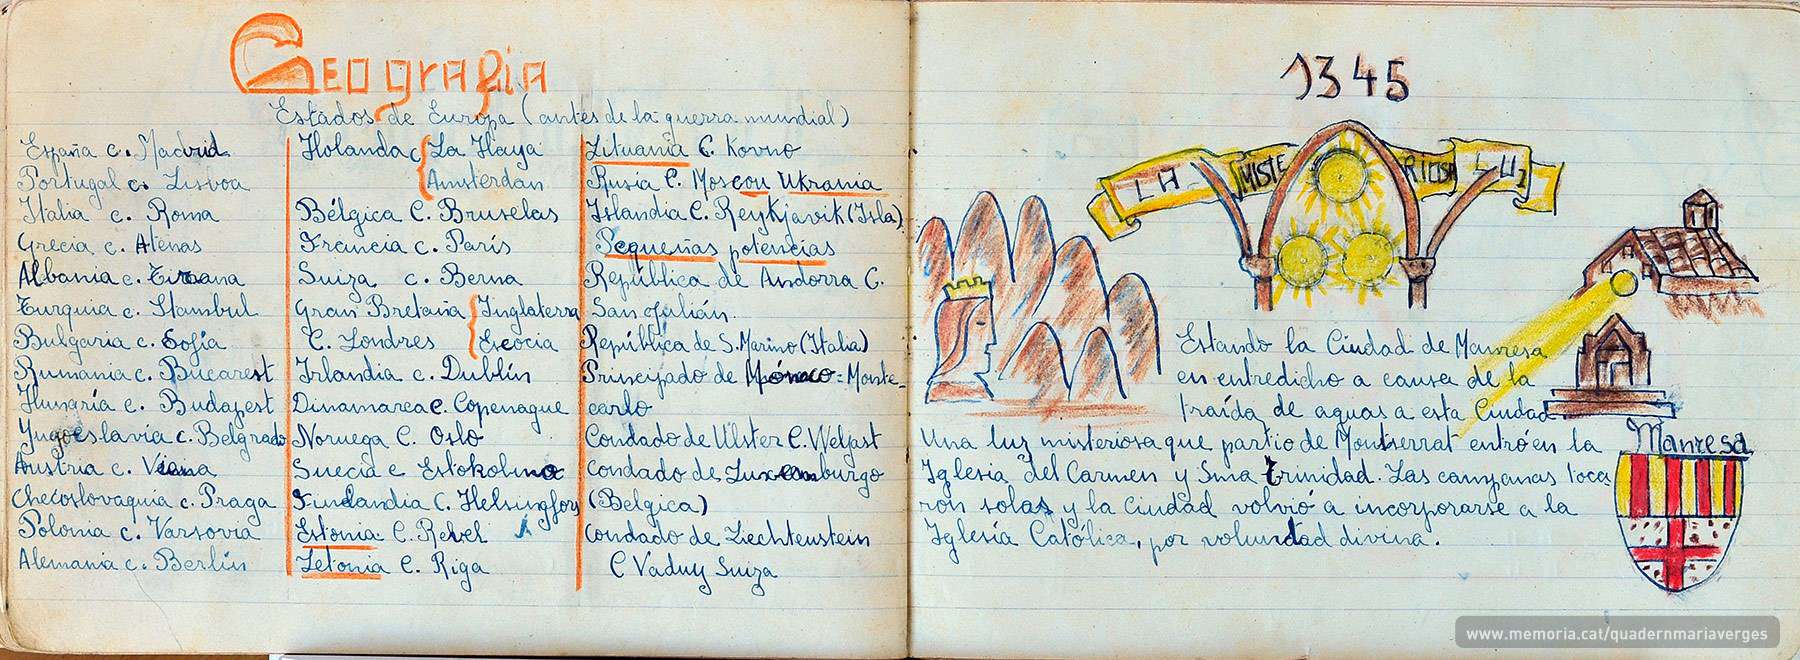 Geografia
Estados de Europa (antes de la guerra mundial)
España c. Madrid
Portugal c. Lisvoa
Italia c. Roma
Grecia c. Atenas
Albania c. Tirana
Turquia c. Stambul
Bulgaria c. Sofía
Rumania c. Bucarest
Hungría c. Budapest
Yugoeslavia c. Belgrado
Austria c. Viena
Checoslovaquia c. Praga
Polonia c. Varsovia
Alemania c. Berlín
Holanda c La Haya
Amsterdan
Bélgica C. Bruselas
Francia c. París
Suiza c. Berna
Gran Bretaña Inglaterra
C. Londres Escocia
Irlandia c. Dublín
Dinamarca c. Copenague
Noruega C. Oslo
Suecia c Estokolmo
Finlandia C. Helsingfors
Estonia C. Revel
Letonia C. Riga
Lituania C. Kovno
Rusia C. Moscou Ukrania
Islandia C. Reykjavik (Isla)
Pequeñas potencias
República de Andorra C.
San Julián.
República de S. Marino (Italia)
Principado de Mónaco = Monte-
carlo
Condado de Ulster C. Welfast
Condado de Luxemburgo
(Belgica)
Condado de Liechtenstein
C Vaduy Suiza
1345
LA MISTERIOSA LUZ
Estando la Ciudad de Manresa
en entredicho a causa de la
traída de aguas a esta Ciudad.
Una luz misteriosa que partio de Montserrat entró en la
Iglesia del Carmen y Sma trinidad. Las campanas toca
ron solas y la Ciudad volvió a incorporarse a la
Iglesia Católica, por volundad divina.
Manresa
www.memoria.cat/quadernmariaverges